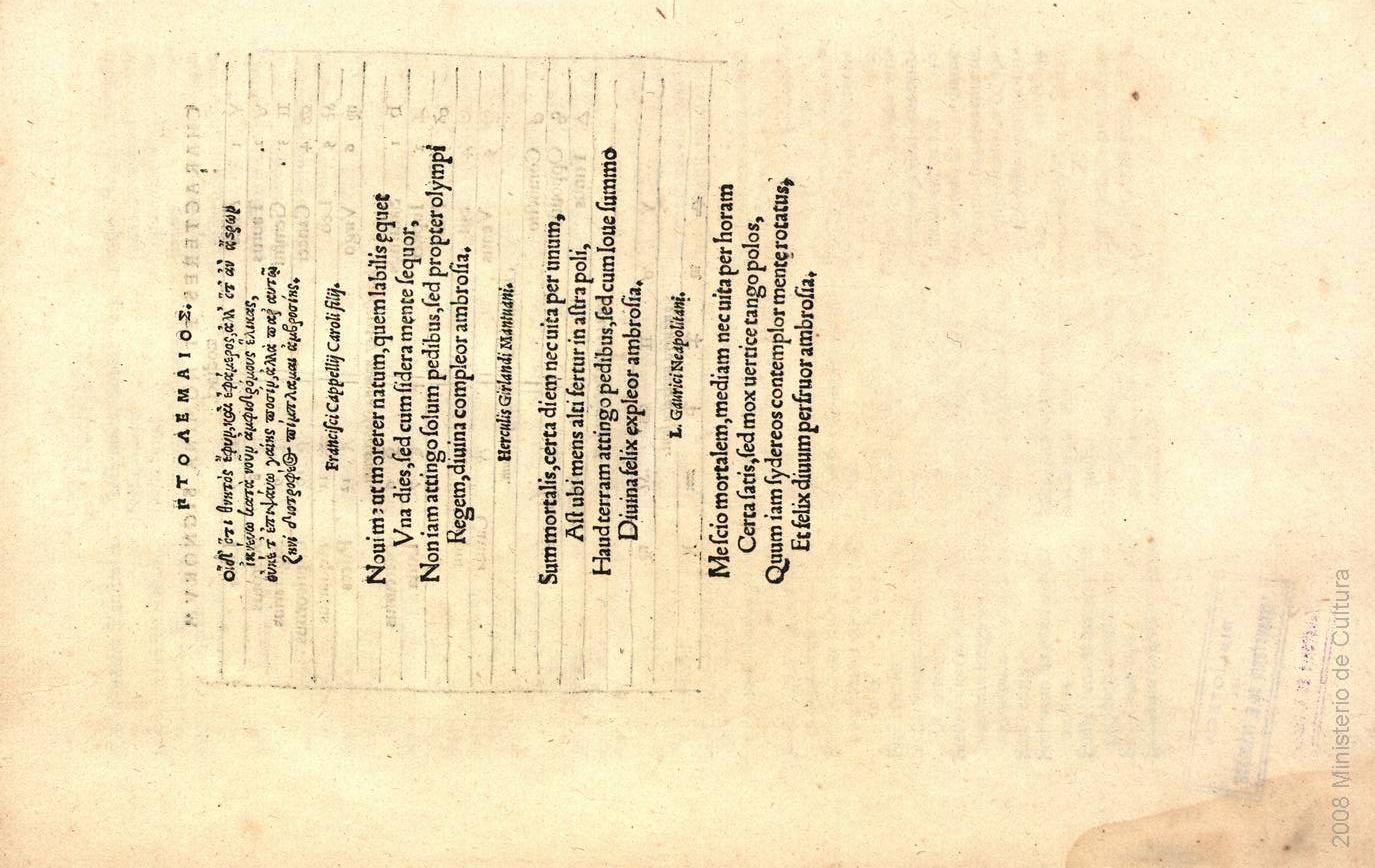 ΠΤΟΛΕΜΑΙΟΣ.
Οἶδ' ὅτι θνητὸς ἔφυν, καὶ ἐφάμερος, ἀλλ' ὅτ' ἂν ἄστρων
ἰχνεύω κατὰ νοῦν ἀμφιδρόμους ἕλικας,
οὐκέτ' ἐπιψαύω γαίης ποσὶν, ἀλλὰ παρ' αὐτῷ
ζηνὶ διοτροφέος πίμπλαμαι ἀμβροσίης.
Francisci Cappellij Caroli filij.
Noui me ut morerer natum, quem labilis ęquet
Vna dies, sed cum sidera mente sequor,
Non iam attingo solum pedibus, sed propter olympi
Regem, diuina compleor ambrosia.
Herculis Girlandi Mantuani.
Sum mortalis, certa diem nec uita per unum,
Ast ubi mens alti fertur in astra poli,
Haud terram attingo pedibus, sed cum Ioue summo
Diuina felix expleor ambrosia.
L. Gaurici Neapolitani.
Me scio mortalem, mediam nec uita per horam
Certa satis, sed mox uertice tango polos,
Quum iam sydereos contemplor mente rotatus,
Et felix diuum perfruor ambrosia.
2008 Ministerio de Cultura